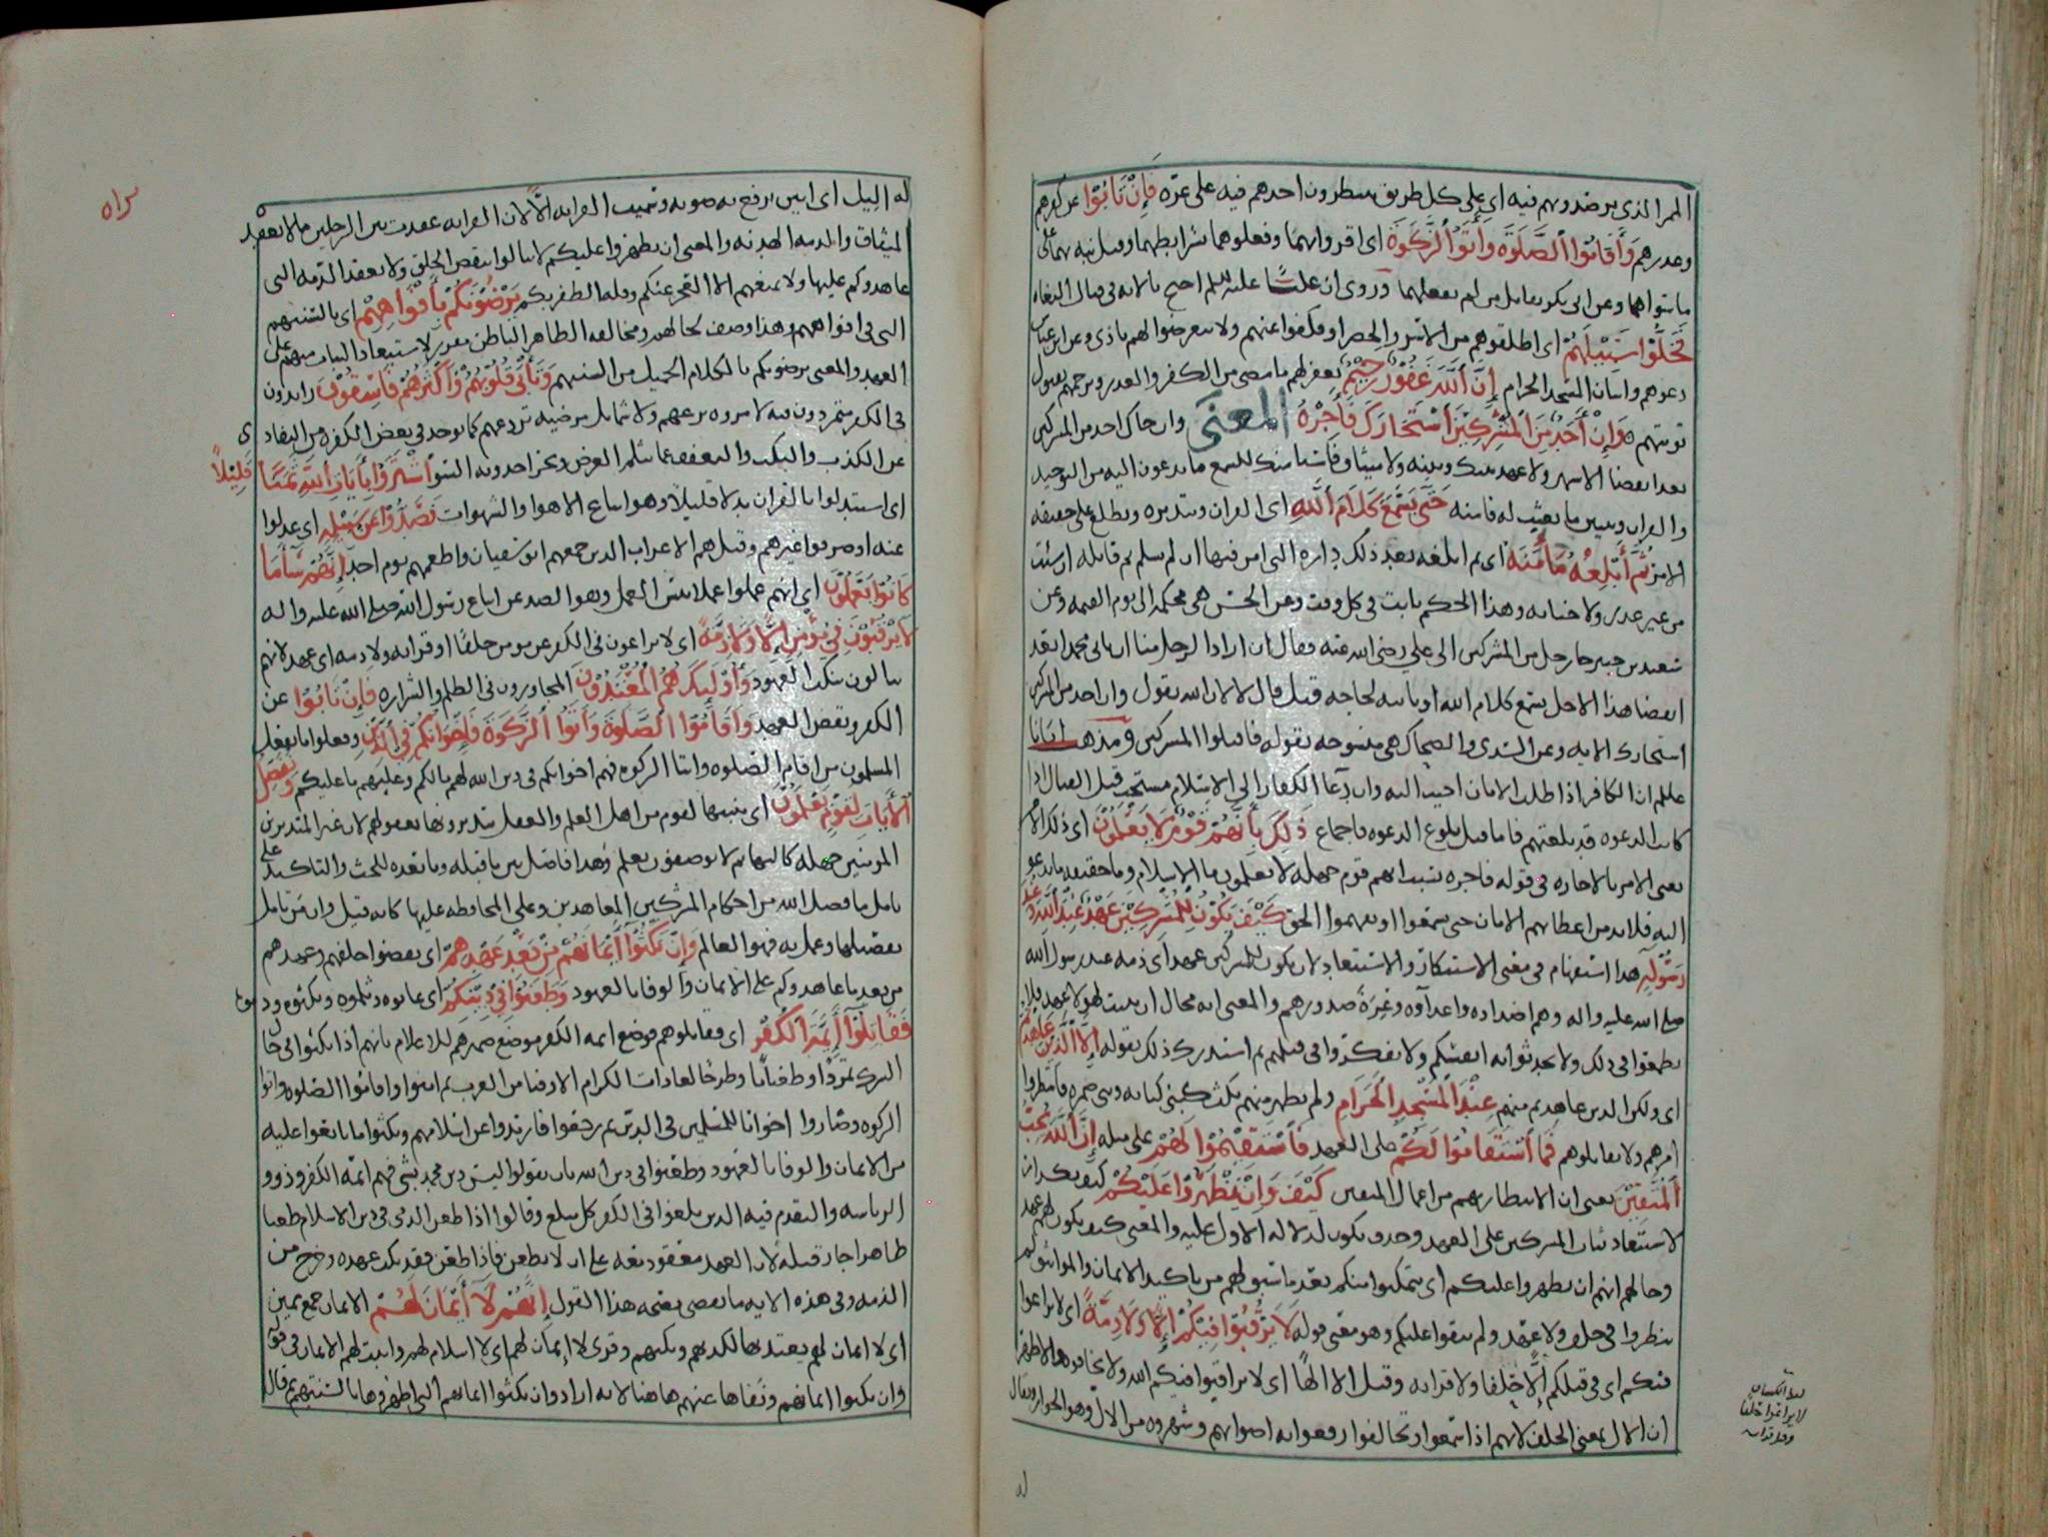 الممر الذي يرصدونهم فيه اي على كل طريق ينتظرون احدهم فيه على غره فَإِنْ تَابُوْا عن كفرهم
وغدرهم وَأَقَامُوْا الصَّلَوٰةَ وَأَتَوُا الزَّكَوٰةَ اى اقروا بهما وفعلوهما بشرايطهما وقيل نبه بهما على
ما سواهما وعن ابي بكر يقاتل من لم يفعلهما وروى ان عليا عليه السلم احتج بالايه في قتال البغاه
فَخَلُّوْا سَبِيْلَهُمْ اى اطلقوهم من الاسر والحصر او فكفوا عنهم ولا تتعرضوا لهم باذى وعن ابن عباس
دعوهم واتيان المسجد الحرام إِنَّ اللَّهَ غَفُوْرٌ رَحِيْمٌ يغفر لهم ما مضى من الكفر والغدر ويرحمهم بقبول
توبتهم وَإِنْ أَحَدٌ مِنَ الْمُشْرِكِيْنَ اسْتَجَارَكَ فَأَجِرْهُ المعنى وان جاك احد من المشركين
بعد انقضا الاشهر ولا عهد بينك وبينه ولا ميثاق فاستامنك ليسمع ما تدعون اليه من التوحيد
والقران وتبيين ما بعثت له فامنه حَتَّى يَسْمَعَ كَلَامَ اللَّهِ اى القران ويتدبره ويطلع على حقيقه
الامر ثُمَّ أَبْلِغْهُ مَأْمَنَهُ اى ثم ابلغه بعد ذلك داره التى امن فيها ان لم يسلم ثم قاتله ان شئت
من غير غدر ولا خيانه وهذا الحكم ثابت في كل وقت وعن الحسن هي محكمه الى يوم القيمه وعن
سعيد بن جبير جا رجل من المشركين الى علي رضي الله عنه فقال ان اراد الرجل منا ان ياتى محمدا بعد
انقضا هذا الاجل يسمع كلام الله او ياتيه لحاجه قتل قال لا لان الله يقول وان احد من المشركين
استجارك الايه وعن السدي والضحاك هى منسوخه بقوله فاقتلوا المشركين ومذهب
عليلم ان الكافر اذا طلب الامان اجيب اليه وان دعا الكفار الى الاسلام مستحب قبل القتال اذا
كانت الدعوه قد بلغتهم فاما قبل بلوغ الدعوه فاجماع ذٰلِكَ بِأَنَّهُمْ قَوْمٌ لَا يَعْلَمُوْنَ اى ذلك الامر
يعنى الامر بالاجاره فى قوله فاجره بسبب انهم قوم جهله لا يعلمون ما الاسلام وما حقيقه ما تدعو
اليه فلا بد من اعطائهم الامان حتى يسمعوا او يفهموا الحق كَيْفَ يَكُوْنُ لِلْمُشْرِكِيْنَ عَهْدٌ عِنْدَ اللَّهِ وَعِنْدَ
رَسُوْلِهِ هذا استفهام في معنى الاستنكار والاستبعاد لان يكون للمشركين عهد اى ذمه عند رسول الله
صلى الله عليه واله وهم اضداده واعداوه وغيرة صدورهم والمعنى انه محال ان يثبت لهولا عهد فلا
تطمعوا في ذلك ولا تحدثوا به انفسكم ولا تفكروا في قتلهم ثم استدرك ذلك بقوله إِلَّا الَّذِيْنَ عَاهَدْتُمْ
اى ولكن الذين عاهدتم منهم عِنْدَ الْمَسْجِدِ الْحَرَامِ ولم يظهر منهم نكث كبني كنانه وبنى ضمره فانتظروا
امرهم ولا تقاتلوهم فَمَا اسْتَقَامُوْا لَكُمْ على العهد فَاسْتَقِيْمُوْا لَهُمْ على مثله إِنَّ اللَّهَ يُحِبُّ
الْمُتَّقِيْنَ يعنى ان الانتظار بهم من اعمال المتقين كَيْفَ وَإِنْ يَظْهَرُوْا عَلَيْكُمْ كيف تكرار
لاستبعاد ثبات المشركين على العهد وحذف يكون لدلاله الاول عليه والمعنى كيف يكون لهم عهد
وحالهم انهم ان يظهروا عليكم اى يتمكنوا منكم بعد ما سبق لهم من تاكيد الايمان والمواثيق لم
ينظروا في حلف ولا عهد ولم يبقوا عليكم وهو معنى قوله لَا يَرْقُبُوْا فِيْكُمْ إِلًّا وَلَا ذِمَّةً اى لا يراعوا
فيكم اى فى قتلكم إِلًّا حِلْفا ولا قرابه وقيل الا الهًا اى لا يراقبوا فيكم الله ولا
ان الال بمعنى الحلف لانهم اذا تماسحوا وتحالفوا رفعوا به اصواتهم وشهروه من الال وهو الجوار ويقال
لا يراعوا حلفا
ولا قرابه
له
له اليل اى انين يرفع به صوته وسميت القرابه الًّا لان القرابه عقدت بين الرجلين ما لا يعقد
الميثاق والذمه الهدنه والمعنى ان يظهروا عليكم لا يبالوا بنقض الحلف ولا بعقد الذمه التى
عاهدوكم عليها ولا يمنعهم الا العجز عنكم وقله الظفر بكم يَرْضُوْنَكُمْ بِأَفْوَاهِهِمْ اى بالسنتهم
التى فى افواههم وهذا وصف لحالهم ومخالفه الظاهر الباطن مقرر لاستبعاد الثبات منهم على
العهد والمعنى يرضونكم بالكلام الجميل من السنتهم وَتَأْبَى قُلُوْبُهُمْ وَأَكْثَرُهُمْ فَاسِقُوْنَ زايدون
فى الكفر متمردون فيه لا مروه تزعهم ولا شمايل مرضيه تردعهم كما يوجد في بعض الكفره من التفادى
عن الكذب والنكث والتعفف عما يثلم العرض ويجر احدوثه السوْ اشْتَرَوْا بِأَيَاتِ اللَّهِ ثَمَنًا قَلِيْلًا
اى استبدلوا بالقران بدلا قليلًا وهو اتباع الاهوا والشهوات فَصَدُّوْا عَنْ سَبِيْلِهِ اى عدلوا
عنه او صرفوا غيرهم وقيل هم الاعراب الذين جمعهم ابو سفيان واطعمهم يوم احد إِنَّهُمْ سَاءَ مَا
كَانُوْا يَعْمَلُوْنَ اى انهم عملوا عملا بئس العمل وهو الصد عن اتباع رسول الله صلى الله عليه واله
لَا يَرْقُبُوْنَ فِي مُؤْمِنٍ إِلًّا وَلَا ذِمَّةً اى لا يراعون فى الكفر عن مومن حلفًا او قرابه ولا ذمه اى عهد لانهم
يبالون بنكث العهود وَأُوْلَٰئِكَ هُمُ الْمُعْتَدُوْنَ المجاوزون فى الظلم والشراره فَإِنْ تَابُوْا عن
الكفر ونقض العهد وَأَقَامُوْا الصَّلَوٰةَ وَأَتَوُا الزَّكَوٰةَ فَإِخْوَانُكُمْ فِي الدِّيْنِ وفعلوا ما يفعل
المسلمون من اقام الصلوه وايتا الزكوه فهم اخوانكم فى دين الله لهم ما لكم وعليهم ما عليكم وَنُفَصِّلُ
الْأَيَاتِ لِقَوْمٍ يَعْلَمُوْنَ اى نبينها لقوم من اهل العلم والعقل يتدبرونها بعقولهم لان غير المتدبرين
المومنين جهله كالبهايم لا يوصفون بعلم وهذا فاصل بين ما قبله وما بعده للحث والتاكيد على
تامل ما فصل الله من احكام المشركين المعاهدين وعلى المحافظه عليها كانه قيل وان من تامل
تفصيلها وعمل به فهو العالم وَإِنْ نَكَثُوْا أَيْمَانَهُمْ مِنْ بَعْدِ عَهْدِهِمْ اى نقضوا حلفهم وعهدهم
من بعد ما عاهدوكم على الايمان والوفا بالعهود وَطَعَنُوْا فِيْ دِيْنِكُمْ اى عابوه وثلموه
فَقَاتِلُوْا أَئِمَّةَ الْكُفْرِ اى فقاتلوهم فوضع ايمه الكفر موضع ضميرهم للاعلام بانهم اذا نكثوا في حال
الشرك تمردًا وطغيانًا وطرحًا لعادات الكرام الاوفيا من العرب ثم امنوا واقاموا الصلوه واتوا
الزكوه وصاروا اخوانا للمسلمين فى الدين ثم رجعوا فارتدوا عن اسلامهم ونكثوا ما بايعوا عليه
من الايمان والوفا بالعهود وطعنوا في دين الله بان يقولوا ليس دين محمد بشى فهم ائمه الكفر وذوو
الرياسه والتقدم فيه الذين بلغوا فى الكفر كل مبلغ وقالوا اذا طعن الذمى فى دين الاسلام طعنا
ظاهرا جاز قتله لان العهد معقود معه على ان لا يطعن فاذا طعن فقد نكث عهده وخرج من
الذمه وفى هذه الايه ما يقضى بصحه هذا القول إِنَّهُمْ لَا أَيْمَانَ لَهُمْ الايمان جمع يمين
اى لا ايمان لهم يعتد بها لكذبهم ونكثهم وقرى لا إيمان لهم اى لا اسلام لهم واثبت لهم الايمان فى قوله
وان نكثوا ايمانهم ونفاها عنهم هاهنا لانه اراد وان نكثوا ايمانهم التى اظهروها بالسنتهم ثم قال